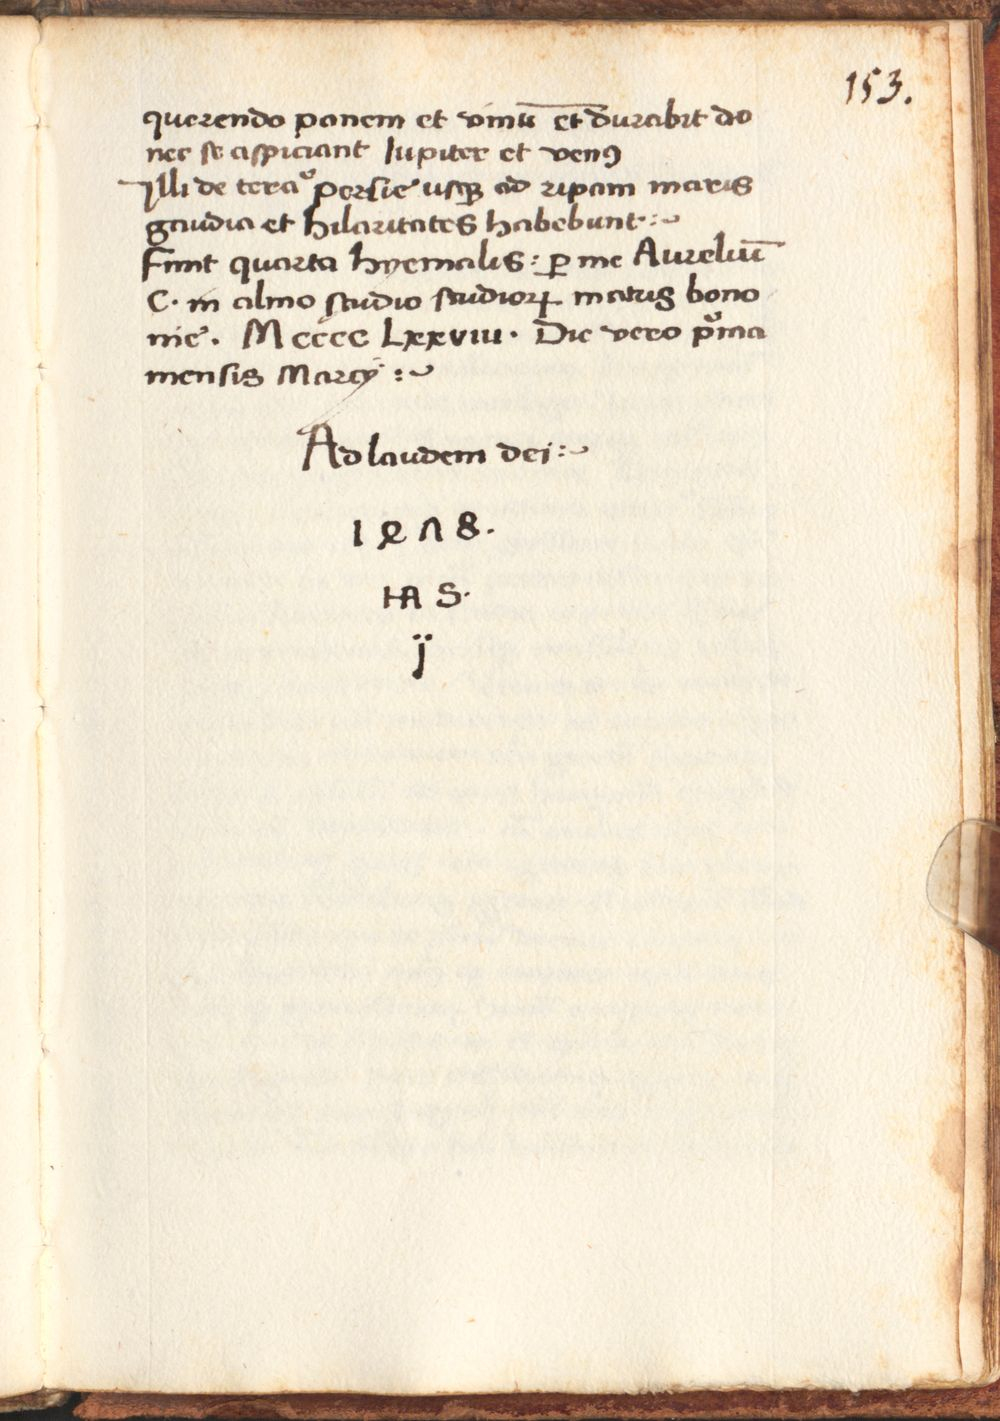 153.
querendo panem et vinuʒ et durabit do
nec se aspiciant Iupiter et venꝰ
Illi de terᷓa persie usqꝫ ad ripam maris
gaudia et hilaritates habebunt :~
Finit quarta hyemalis : ꝑ me Aureliū
C. in almo studio studioꝝ matris bono
nie. Mcccc Lxxviii. Die vero pͥma
mensis Marcij :~
Ad laudem dei :~
1478.
HA S.
j̈